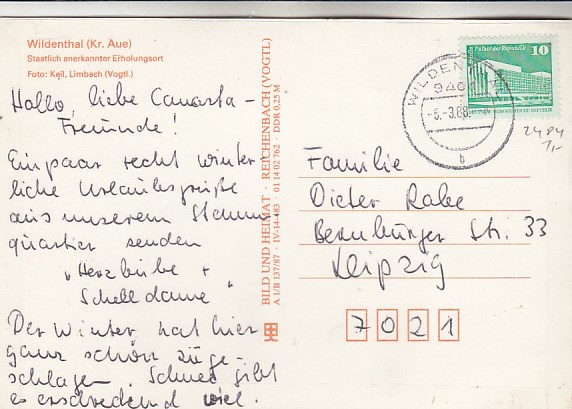 Wildenthal (Kr. Aue)
Staatlich anerkannter Erholungsort
Foto: Keil, Limbach (Vogtl.)
Hallo, liebe Canasta-
Freunde!
Ein paar recht winter-
liche Urlaubsgrüße
aus unserem Stamm-
quartier senden
"Herzbube +
Schelldame"
Der Winter hat hier
ganz schön zuge-
schlagen. Schnee gibt
es erschreckend viel.
BILD UND HEIMAT · REICHENBACH (VOGTL)
A 1/B 137/87 · IV-14-483 · 01 14 02 762 · DDR 0,25 M
WILDEN
940
-5.-3.88
b
Palast der Republik
10
DEUTSCHE DEMOKRATISCHE REPUBLIK
2484
1,-
Familie
Dieter Rabe
Bernburger Str. 33
Leipzig
7021